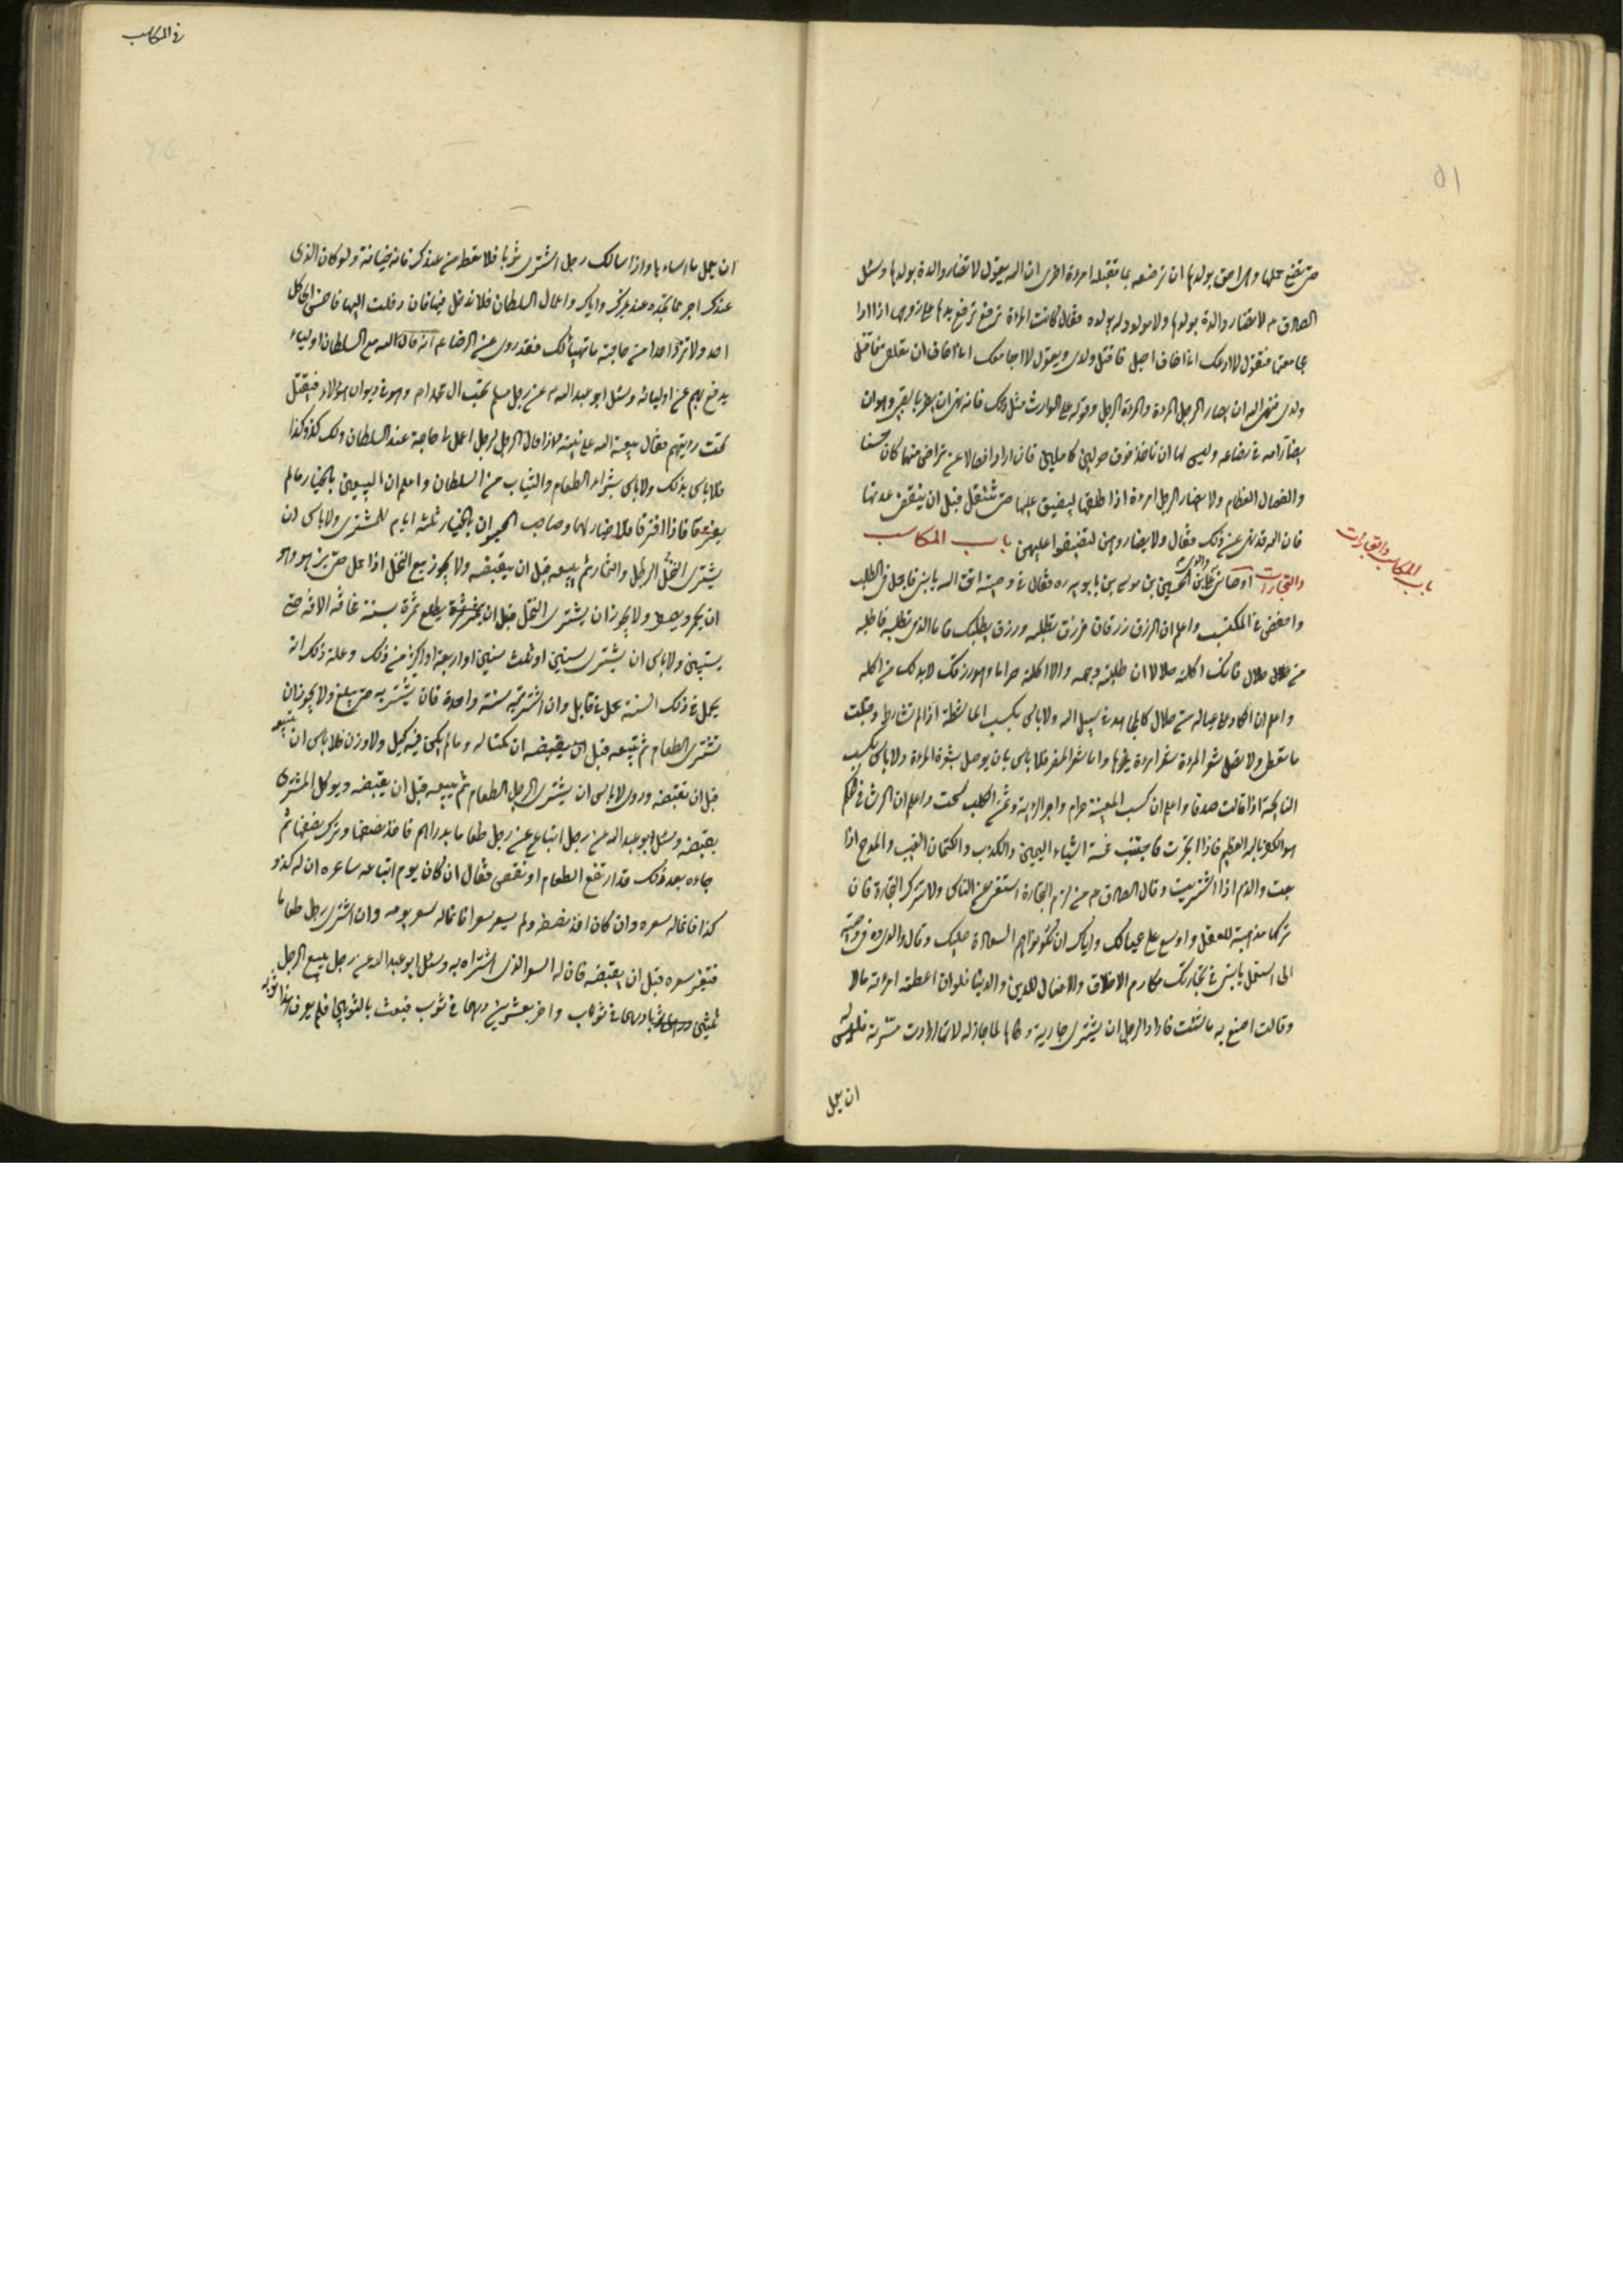 حتى تضع حملها وهى احق بولدها ان ترضعه بما تقبله امرءة اخرى ان الله يقول لا تضار والدة بولدها وسئل
الصادق ع لا تضار والدة بولدها ولا مولود له بولده فقال كانت المراة ترفع يدها على زوجها اذا اراد
مجامعتها فتقول لا ادعك انا اخاف احبل فاقتل ولدى ويقول لا اجامعك انا اخاف ان تعلقى فاقتل
ولدى فنهى الله ان يضار الرجل المرءة والمرءة الرجل وقوله على الوارث مثل ذلك فانه نهى ان يضر بالصبى وهو ان
يضار امه فى رضاعه وليس لها ان تاخذ فوق حولين كاملين فان ارادا فصالا عن تراض منهما كان حسنا
والفصال الفطام ولا يضار الرجل امرءة اذا طلقها ليضيق عليها حتى تنتقل قبل ان ينقضى عدتها
فان الله قد نهى عن ذلك فقال ولا تضاروهن لتضيقوا عليهن باب المكاسب
باب المكاسب والتجارات
والتجارات اوصانى والدى على بن الحسين بن موسى بن بابويه ره فقال فى وصيته اتق الله يا بنى فاجمل فى الطلب
واخفض فى المكتسب واعلم ان الرزق رزقان فرزق تطلبه ورزق يطلبك فاما الذى تطلبه فاطلبه
من حلال فانك اكلته حلالا ان طلبته وجهه والا اكلته حراما وهو رزقك لا بد لك من اكله
واعلم ان الكاد على عياله من حلال كالمجاهد فى سبيل الله ولا باس بكسب الماشطة اذا لم تشارط وقبلت
ما تعطى ولا تصل شعر المرءة بشعر امرءة غيرها واما شعر المعز فلا باس بان يوصل بشعر المرءة ولا باس بكسب
النائحة اذا قالت صدقا واعلم ان كسب المغنية حرام واجر الزانية وثمن الكلب سحت واعلم ان الرشا فى الحكم
هو الكفر بالله العظيم فاذا اتجرت فاجتنب خمسة اشياء اليمين والكذب والكتمان العيب والمدح اذا
بعت والذم اذا اشتريت وقال الصادق ع من لزم التجارة استغنى عن الناس ولا تترك التجارة فان
تركها مذهبة للعقل واوسع على عيالك واياك ان يكونوا هم السعاة عليك وقال والدى ره فى وصيته
الى استعمل يا بنى فى تجارتك مكارم الاخلاق والافضال للدين والدنيا فلو ان اعطته امرءته مالا
وقالت اصنع به ما شئت فاراد الرجل ان يشترى جارية وطئها لما جاز له لانها ارادت مسرته فليس له
ان يعمل
فى المكاسب
ان يعمل ما ساءها واذا سالك رجل اشترى ثوبا فلا تعطه من عندك فانه خيانة ولو كان الذى
عندك اجود مما تجده عند غيرك واياك واعمال السلطان فلا تدخل فيها فان دخلت اليها فاحسن الى كل
احد ولا ترد احدا من حاجته ما تهيأ لك فقد روى عن الرضا ع انه قال لله مع السلطان اولياء
يدفع بهم عن اوليائه وسئل ابو عبد الله ع عن رجل مسلم يحب آل محمد ع وهو فى ديوان هؤلاء فيقتل
تحت رايتهم فقال يبعثه الله على نيته فاذا قال الرجل لرجل اعمل لى حاجة عند السلطان ولك كذا وكذا
فلا باس بذلك ولا باس بشراء الطعام والثياب من السلطان واعلم ان البيعين بالخيار ما لم
يفترقا فاذا افترقا فلا خيار لهما وصاحب الحيوان بالخيار ثلثة ايام للمشترى ولا باس ان
يشترى النخل الرطل والثمار ثم يبيعه قبل ان يقبضه ولا يجوز بيع النخل اذا حمل حتى يزهو وهو
ان يحمر ويصفر ولا يجوز ان يشترى النخل قبل ان يطلع ثمرة بسنة مخافة الافة حتى
يستبين ولا باس ان يشترى سنتين او ثلث سنين او اربعة او اكثر من ذلك وعلة ذلك انه
يحمل فى ذلك السنة يحمل فى قابل وان اشتريته سنة واحدة فلا تشتريه حتى يبلغ ولا يجوز ان
تشترى الطعام ثم تبيعه قبل ان يقبضه ان تكتاله وما لم يكن فيه كيل ولا وزن فلا باس ان تبيعه
قبل ان تقبضه وروى لا باس ان يشترى الرجل الطعام ثم يبيعه قبل ان يقبضه ويوكل المشترى
بقبضه وسئل ابو عبد الله ع عن رجل ابتاع عن رجل طعاما بدراهم فاخذ نصفها وترك نصفها ثم
جاءه بعد ذلك وقد ارتفع الطعام او نقص فقال ان كان يوم ابتاعه ساعره ان له كذا و
كذا فانما له سعره وان كان اخذ نصفه ولم يسعر سعرا فانما له سعر يومه وان اشترى رجل طعاما
فتغير سعره قبل ان يقبضه فان له السعر الذى اشتراه به وسئل ابو عبد الله ع عن رجل يبيع الرجل
ثلثين درهما فى ثوب واخر بعشرين درهما فى ثوب فبعث بالثوبين فلم يعرف هذا ثوبه